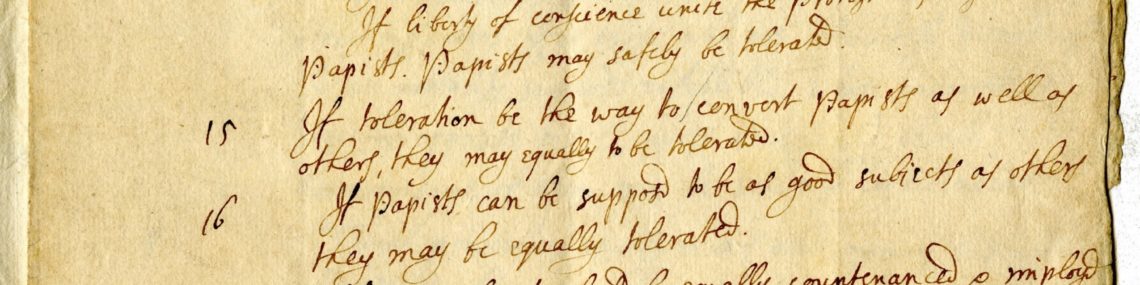 If liberty of conscience unite the
Papists. Papists may safely be tolerated.
15 If toleration be the way to convert Papists as well as
others, they may equally to be tolerated.
16 If Papists can be supposd to be as good subjects as others
they may be equally tolerated.
equally countenanced & imployd